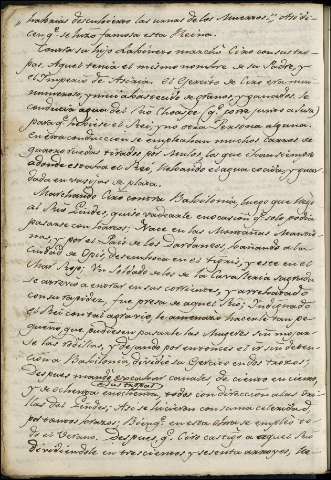 habrias descubierto las urnas de los Muertos." Asi di-
cen q.e se hizo famosa esta Reina.
Contra su hijo Labinero marchó Ciro con sus tro-
pas. Aquel tenia el mismo nombre de su Padre, y
el Imperio de Asiria. El Exercito de Ciro era
numeroso, y mui abastecido de granos, y ganados. Se
conducia agua del Rio Choaspe (q.e corre junto a Susa)
para q.e bebiese el Rei, y no otra Persona alguna.
En esta conduccion se empleaban muchos carros de
quatro ruedas tirados por Mulos, los que iban siempre
adonde estaba el Rei, llevando el agua cocida, y guar-
dada en vasijas de plata.
Marchando Ciro contra Babilonia, luego que llegó
al Rio Gindes, quiso vadearle en ocasion q.e solo podia
pasarse con barcos. Nace en las Montañas Mantie-
nas, y por el Pais de los Dardaneos, bañando a la
Ciudad de Opis, desemboca en el Tigris, y este en el
Mar Rojo. Un Soldado de los de la Caballeria sagrada
se atrevio a entrar en sus corrientes, y arrebatado
con su rapidez, fue presa de aquel Rio. Indignado
el Rei con tal agravio, le amenazó hacerle tan pe-
queño que pudiesen pasarle las Mugeres sin mojar-
se las rodillas, y dejando por entonces el ir sin deten-
cion a Babilonia dividió su Exercito en dos trozos.
Despues mandó excabar canales de ciento en ciento,
y de ochenta en ochenta, todos con direccion a las Ori-
llas del Gindes; Asi se hicieron con suma celeridad,
por varios sitios. Bien q.e en esta obra se empleó to-
do el Verano. Despues q.e Ciro castigó a aquel Rio
dividiendole en trescientos y sesenta arroyos, lle-